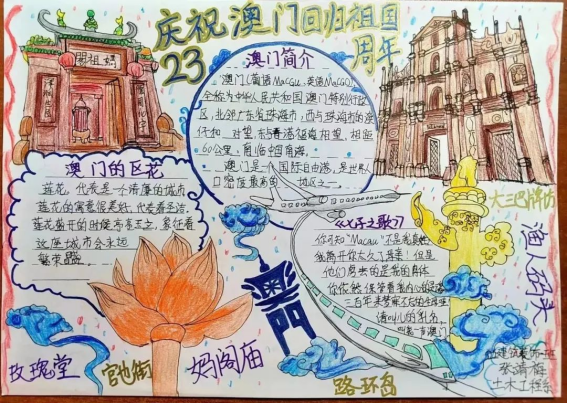 庆祝澳门回归祖国
23周年
澳门简介
澳门(葡语Macau,英语Macao)
全称为中华人民共和国澳门特别行政
区,北邻广东省珠海市,西与珠海市的湾
仔和 对望,东与香港 相望,相距
60公里,南临中国南海。
澳门是一个国际自由港,是世界人
口密度最高的 地区之一。
妈祖阁
澳门的区花
莲花,代表是一个清廉的城市
莲花的寓意很是好,代表着圣洁。
这座城市会永远
繁荣昌盛。
大三巴牌坊
渔人码头
《七子之歌》
你可知"Macau"不是我真姓
我离开你太久了,母亲!但是
他们掳去的是我的身体
你依然保管着我内心的灵魂
三百年来梦寐不忘的生母啊
请叫儿的乳名,
叫我一声澳门
澳门
玫瑰堂
官也街
妈阁庙
路环岛
土木工程系